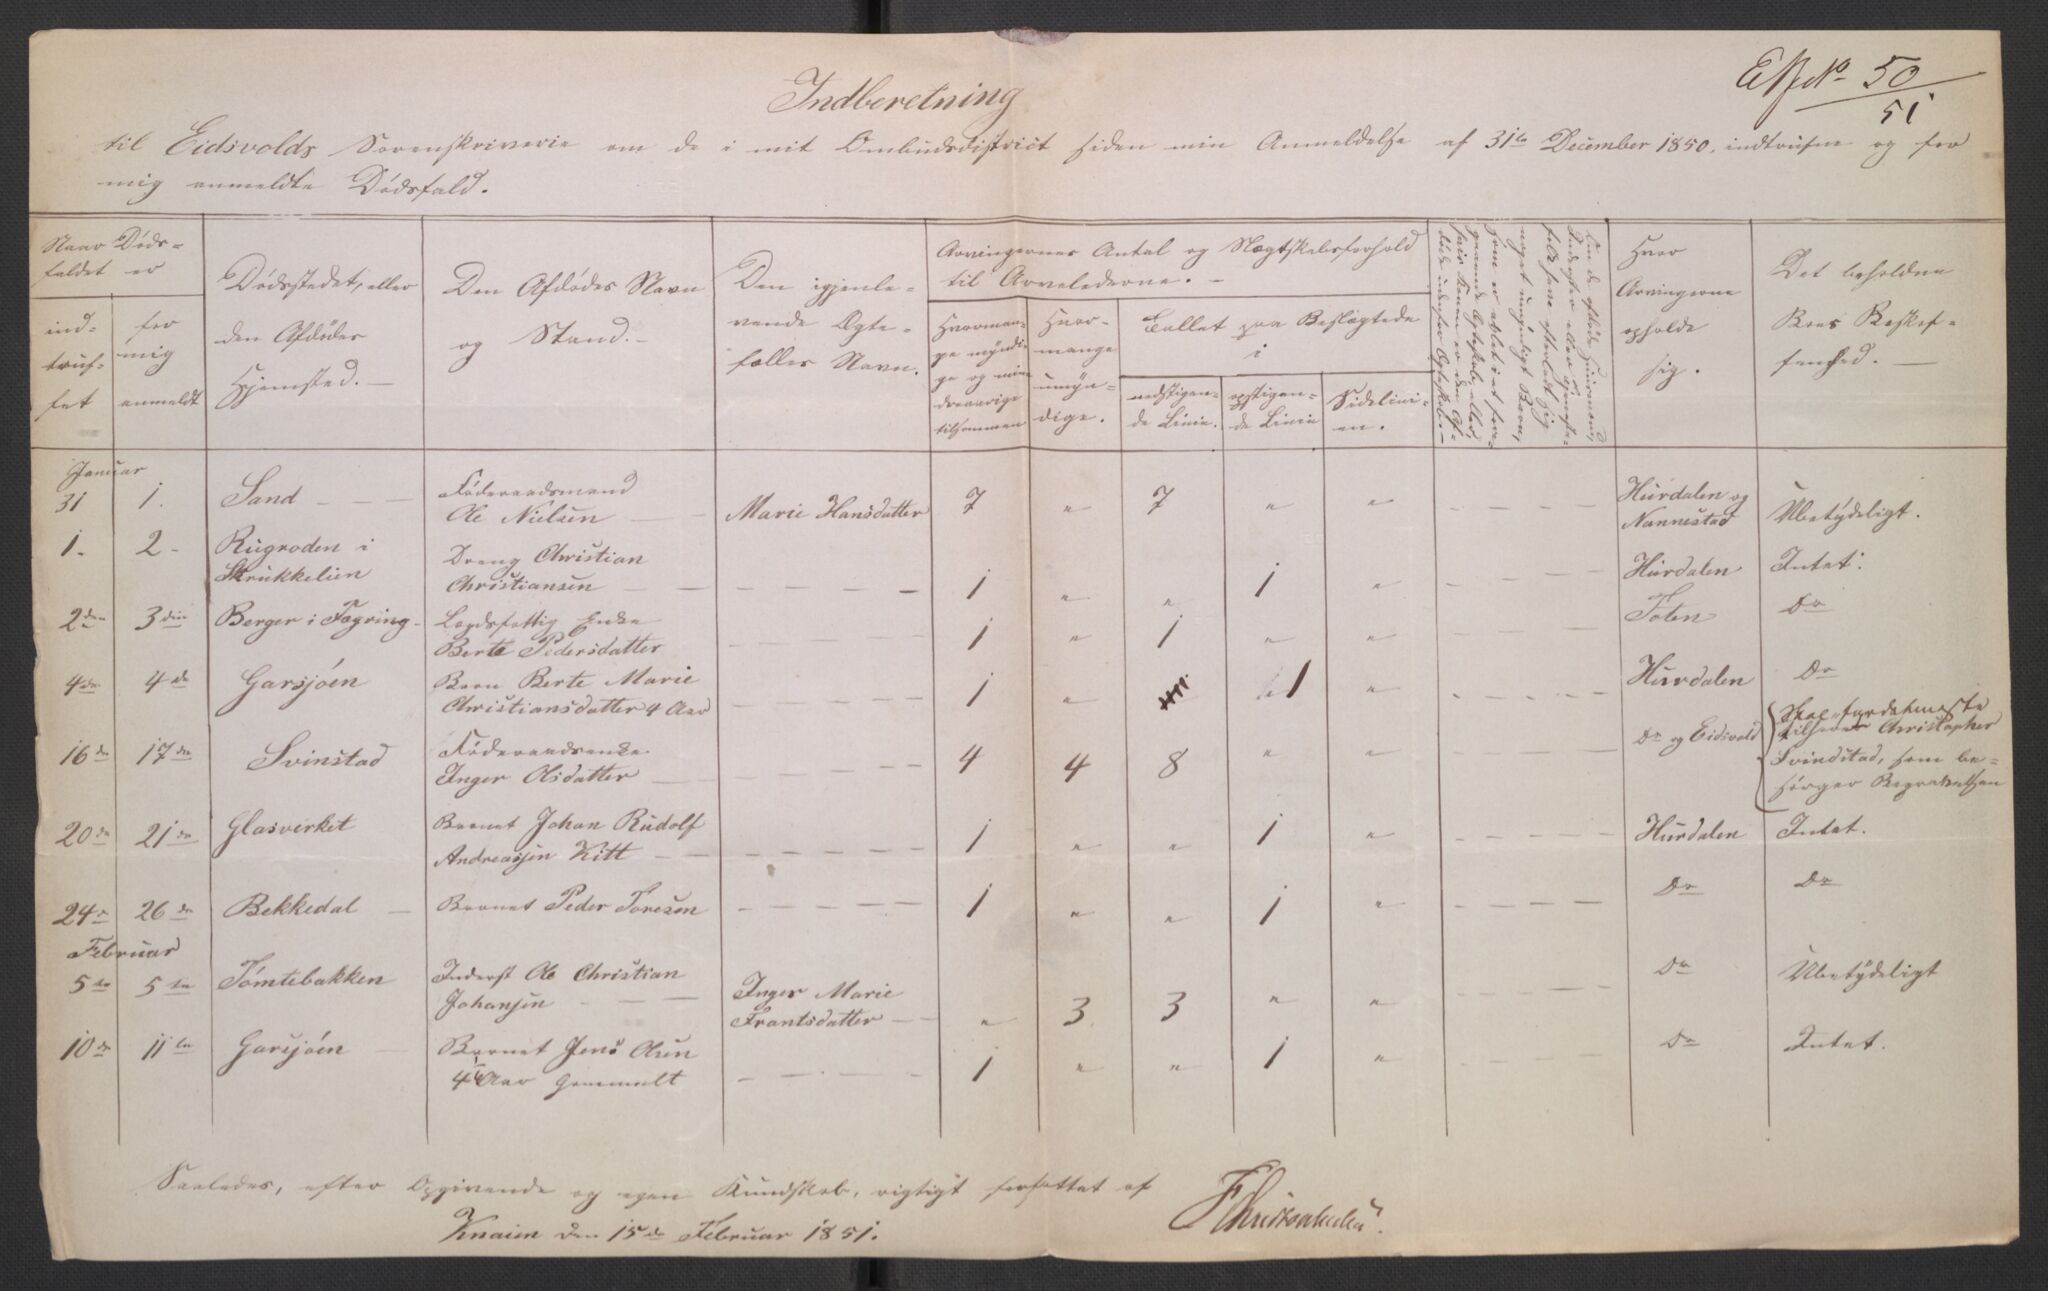 Indberetning
No 50
51
til Eidsvolds Sorenskriverie om de i mit Ombudsdistrict siden min Anmeldelse af 31te December 1850, indtrufne og for
mig anmeldte Dødsfald.
Naar Døds-
faldet er
ind-
truf-
fet
for
mig
anmeldt
Dødsstedet, eller
den Afdødes
Hjemsted. —
Den Afdødes Navn
og Stand. —
Den igjenle-
vende Ægte-
fælles Navn.
Arvingernes Antal og Slægtskabsforhold
til Arveladerne. —
Hvorman-
ge myndi-
ge og min-
dreaarige
tilsammen
Hvor-
mange
umyn-
dige.
Tallet paa Beslægtede
i
nedstigen-
de Linie.
opstigen-
de Linie
Sidelini-
en.
Hvor
Arvingerne
opholde
sig.
Det beholdne
Boes Beskaf-
fenhed. —
Januar
31 1. Sand — — — Føderaadsmand
Ole Nielsen — Marie Hansdatter 7 " 7 " " — — — — Hurdalen og
Nannestad Ubetydeligt.
1. 2. Rugroden i
Skrukkelien Dreng Christian
Christiansen — — — — — — 1 " " 1 " — — — — Hurdalen Intet.
2den 3die Berger i Fagring Lægdsfattig Enke
Berte Pedersdatter — — — — 1 " 1 " " — — — — Toten Do
4de 4de Garsjøen Barn Berte Marie
Christiansdatter 4 Aar — — — — 1 " 1 " — — — — Hurdalen Do
16de 17de Svinstad Føderaadsenke
Inger Olsdatter — — — — — 4 4 8 " " — — — — Do og Eidsvold Christopher
Svindstad, som be-
sørger Begravelsen
20de 21de Glasverket Barnet Johan Rudolf
Andreassen Kitt — — — — — — 1 " " 1 " — — — — Hurdalen Intet.
24de 26de Bekkedal — Barnet Peder Toresen — — — — — 1 " " 1 " — — — — Do Do
Februar
5te 5te Tømtebakken Inderst Ole Christian
Johansen — — — Inger Marie
Frantsdatter — — " 3 3 " " — — — — Do Ubetydeligt
10de 11te Garsjøen — Barnet Jens Olsen
4 Aar Gammelt — — — — 1 " " 1 " Do Intet.
Saaledes, efter Opgivende og egen Kundskab, rigtigt forfattet af
Knaien den 15de Februar 1851.